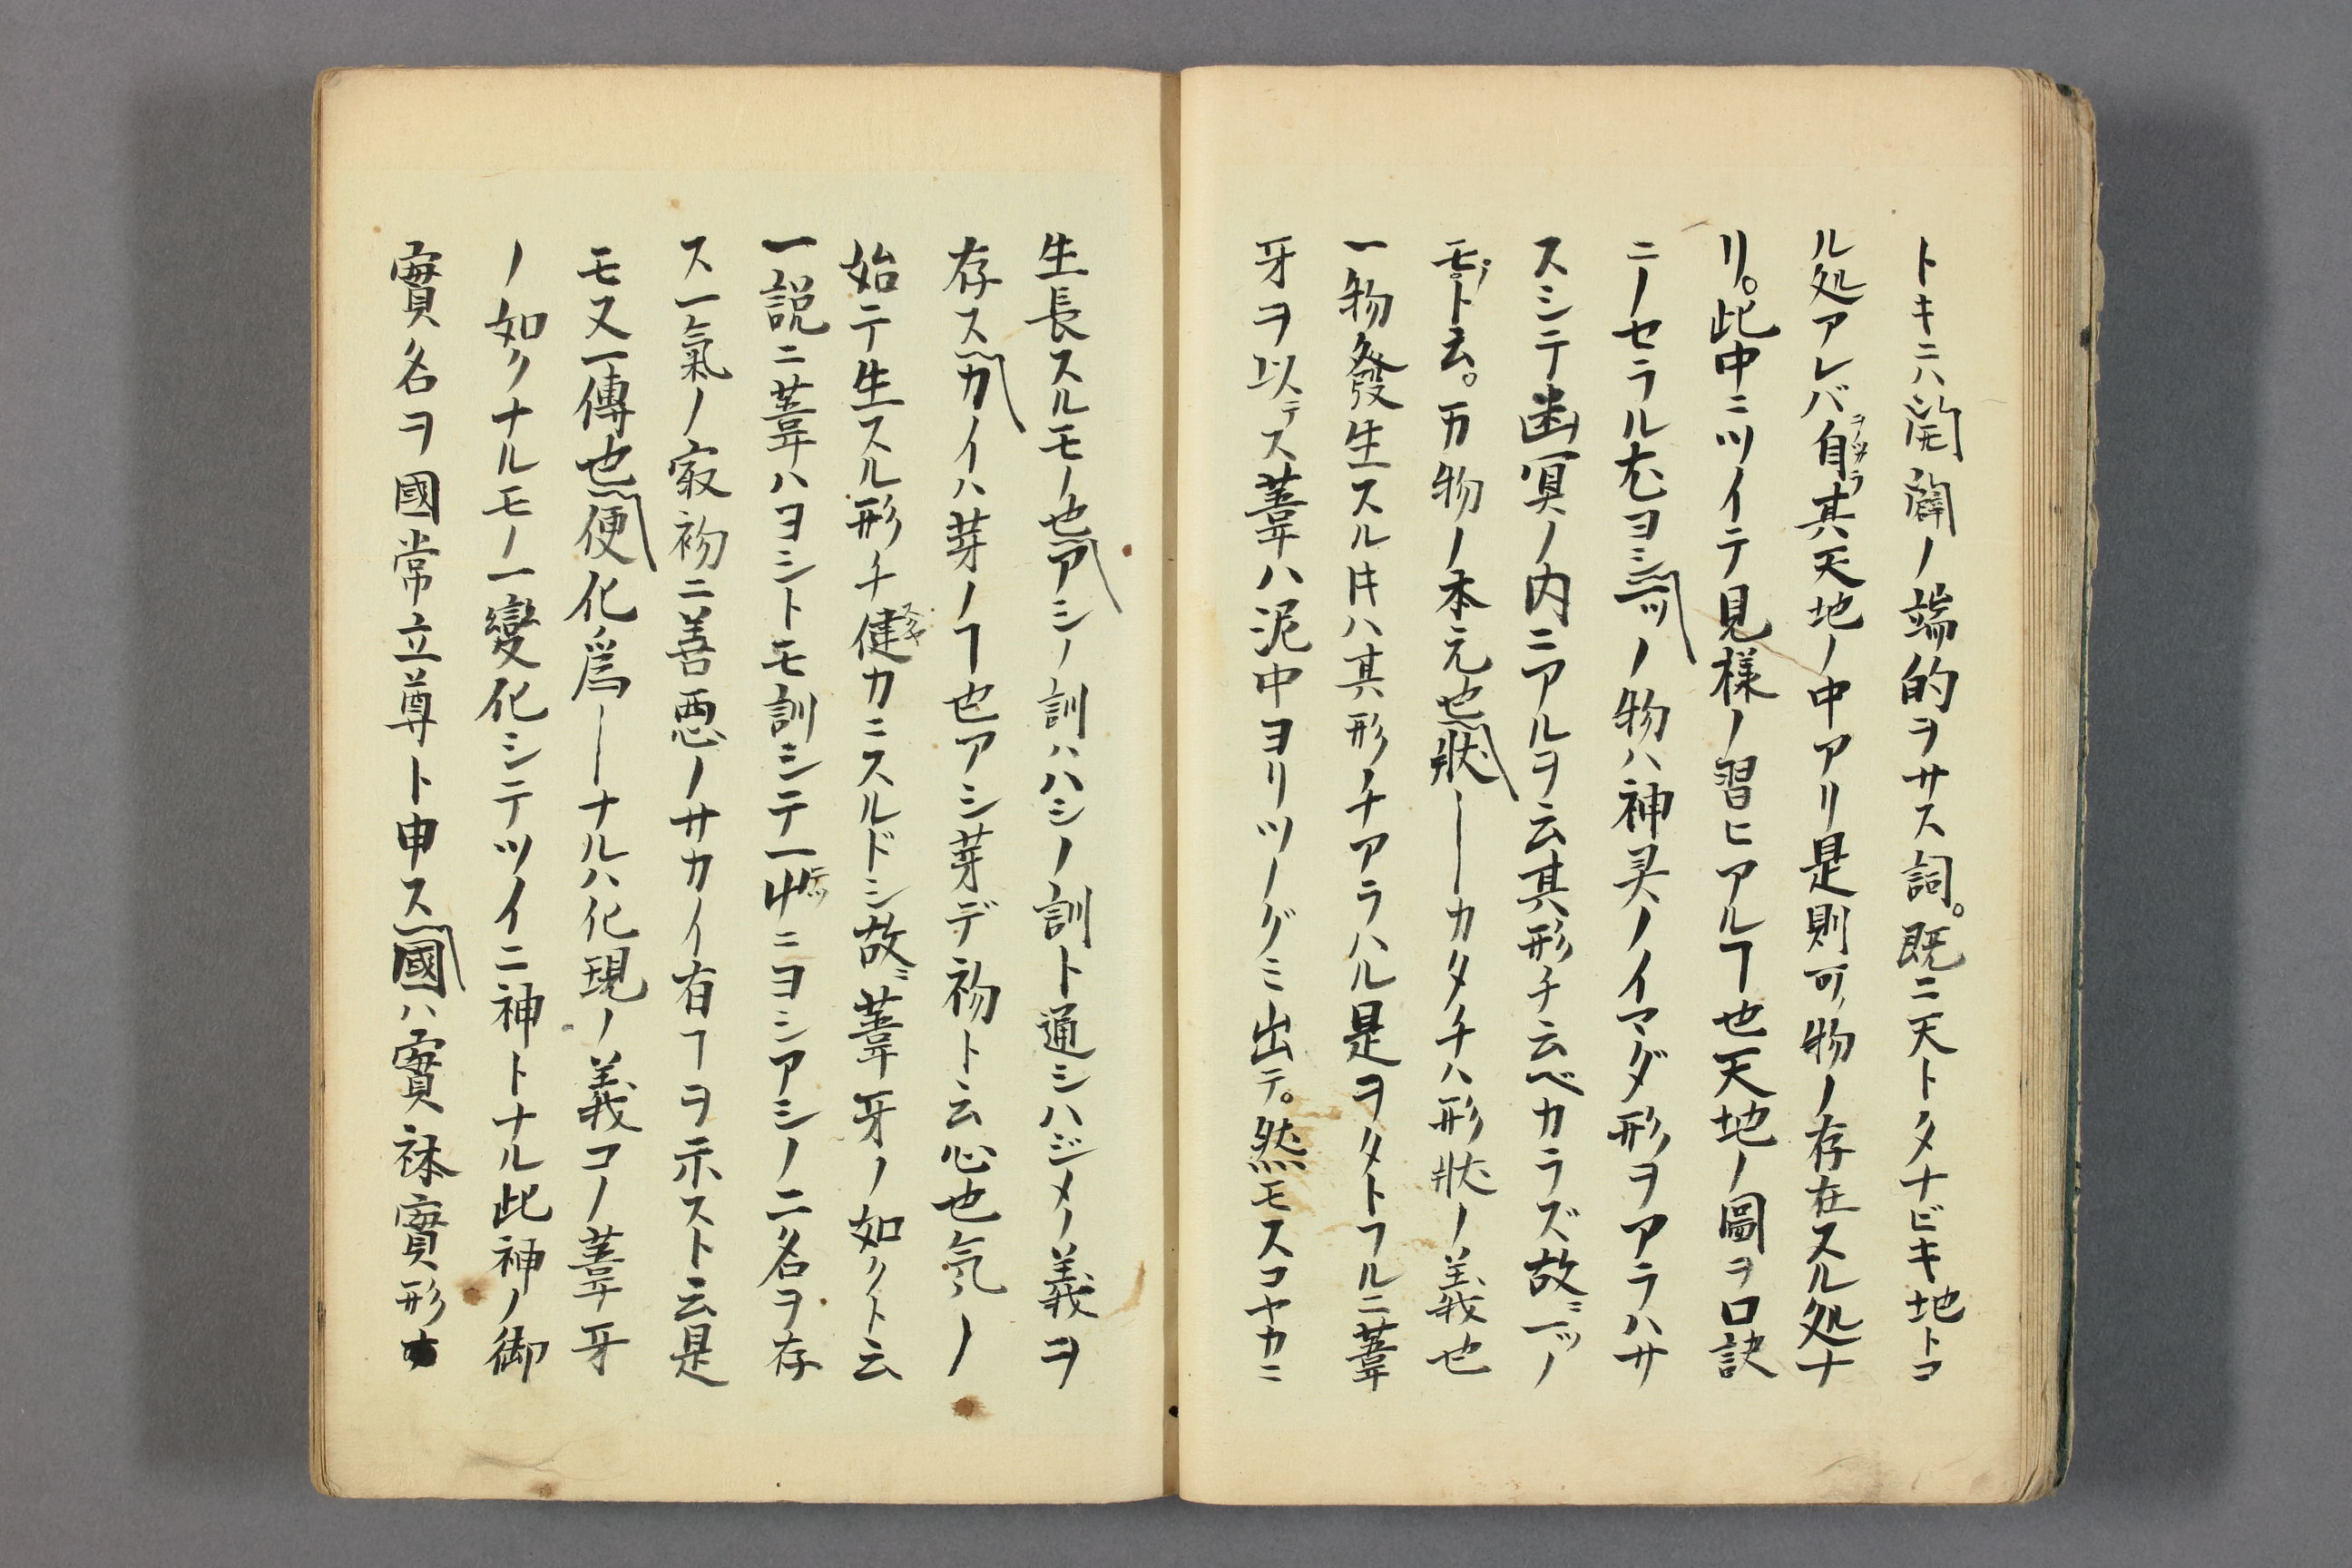 トキニハ開闢ノ端的ヲサス詞。既ニ天トタナビキ地トコ
ル処アレバ自ヲノヅカラ其天地ノ中アリ是則可ノ物ノ存在スル処ナ
リ。此中ニツイテ見様ノ習ヒアルヿ也天地ノ圖ヲ口訣
ニノセラル尤ヨシ一ツノ物ハ神灵ノイマダ形ヲアラハサ
スシテ幽冥ノ内ニアルヲ云其形チ云ベカラズ故ニ一ツノ
モノト云。万物ノ本元也狀―カタチハ形狀ノ義也
一物發生スル㞮ハ其形チアラハル是ヲタトフルニ葦
牙ヲ以テス葦ハ泥中ヨリツノグミ出テ。然モスコヤカニ
生長スルモノ也アシノ訓ハハシノ訓ト通シハジメノ義ヲ
存スカイハ芽ノヿ也アシ芽デ初ト云心也気ノ
始テ生スル形チ健スコヤカニスルドシ故ニ葦牙ノ如クト云
一説ニ葦ハヨシトモ訓シテ一草ニヨシアシノ二名ヲ存
ス一氣ノ最初ニ善悪ノサカイ有ヿヲ示スト云是
モ又一傳也便化爲―ナルハ化現ノ義コノ葦牙
ノ如クナルモノ一變化シテツイニ神トナル此神ノ御
實名ヲ國常立尊ト申ス國ハ實躰實形